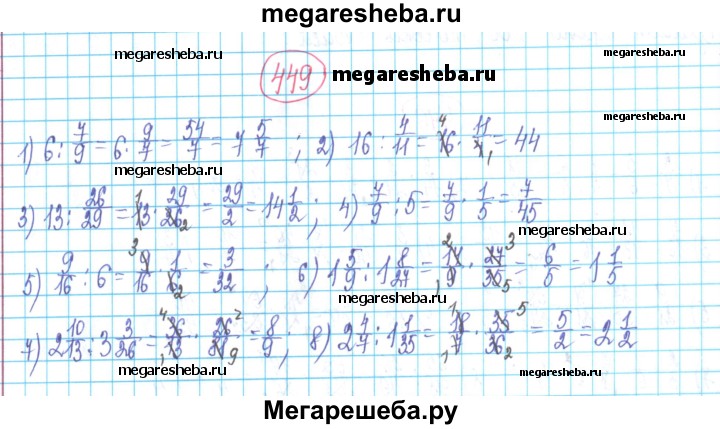 megaresheba.ru
megaresheba.ru
449 megaresheba.ru
1) 6 : 7/9 = 6 · 9/7 = 54/7 = 7 5/7 ; 2) 16 : 4/11 = 16 · 11/4 = 44
megaresheba.ru
3) 13 : 26/29 = 13 · 29/26 = 29/2 = 14 1/2 ; 4) 7/9 : 5 = 7/9 · 1/5 = 7/45
megaresheba.ru
5) 9/16 : 6 = 9/16 · 1/6 = 3/32 ; 6) 1 5/9 : 1 8/27 = 14/9 · 27/35 = 6/5 = 1 1/5
megaresheba.ru
7) 2 10/13 : 3 3/26 = 36/13 · 26/81 = 8/9 ; 8) 2 4/7 : 1 1/35 = 18/7 · 35/36 = 5/2 = 2 1/2
megaresheba.ru
megaresheba.ru
Мегарешеба.ру